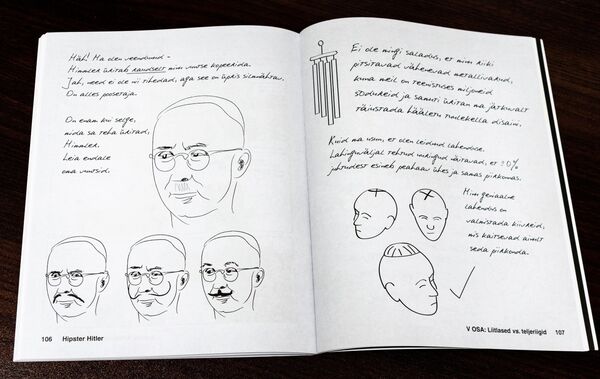 Häh! Ma olen veendunud –
Himmler üritab raudselt minu vuntse kopeerida.
Jah, need ei ole nii tihedad, aga see on üpris silmnähtav.
On alles poosetaja.
On enam kui selge,
mida sa teha üritad,
Himmler.
Leia endale
oma vuntsid.
106 Hipster Hitler
Ei ole mingi saladus, et minu riiki
pitsitavad vähenevad metallivarud,
kuna meil on teenistuses miljoneid
sõdureid ja samuti üritan ma jätkuvalt
täiustada hääletu tuulekella disaini.
Kuid ma usun, et olen leidnud lahenduse.
Lahinguväljal tehtud uuringud näitavad, et
juhtudest esineb peahaav ühes ja samas piirkonnas.
Minu geniaalne
lahendus on
valmistada kiivreid,
mis kaitsevad ainult
seda piirkonda.
V OSA: Liitlased vs. teljeriigid 107